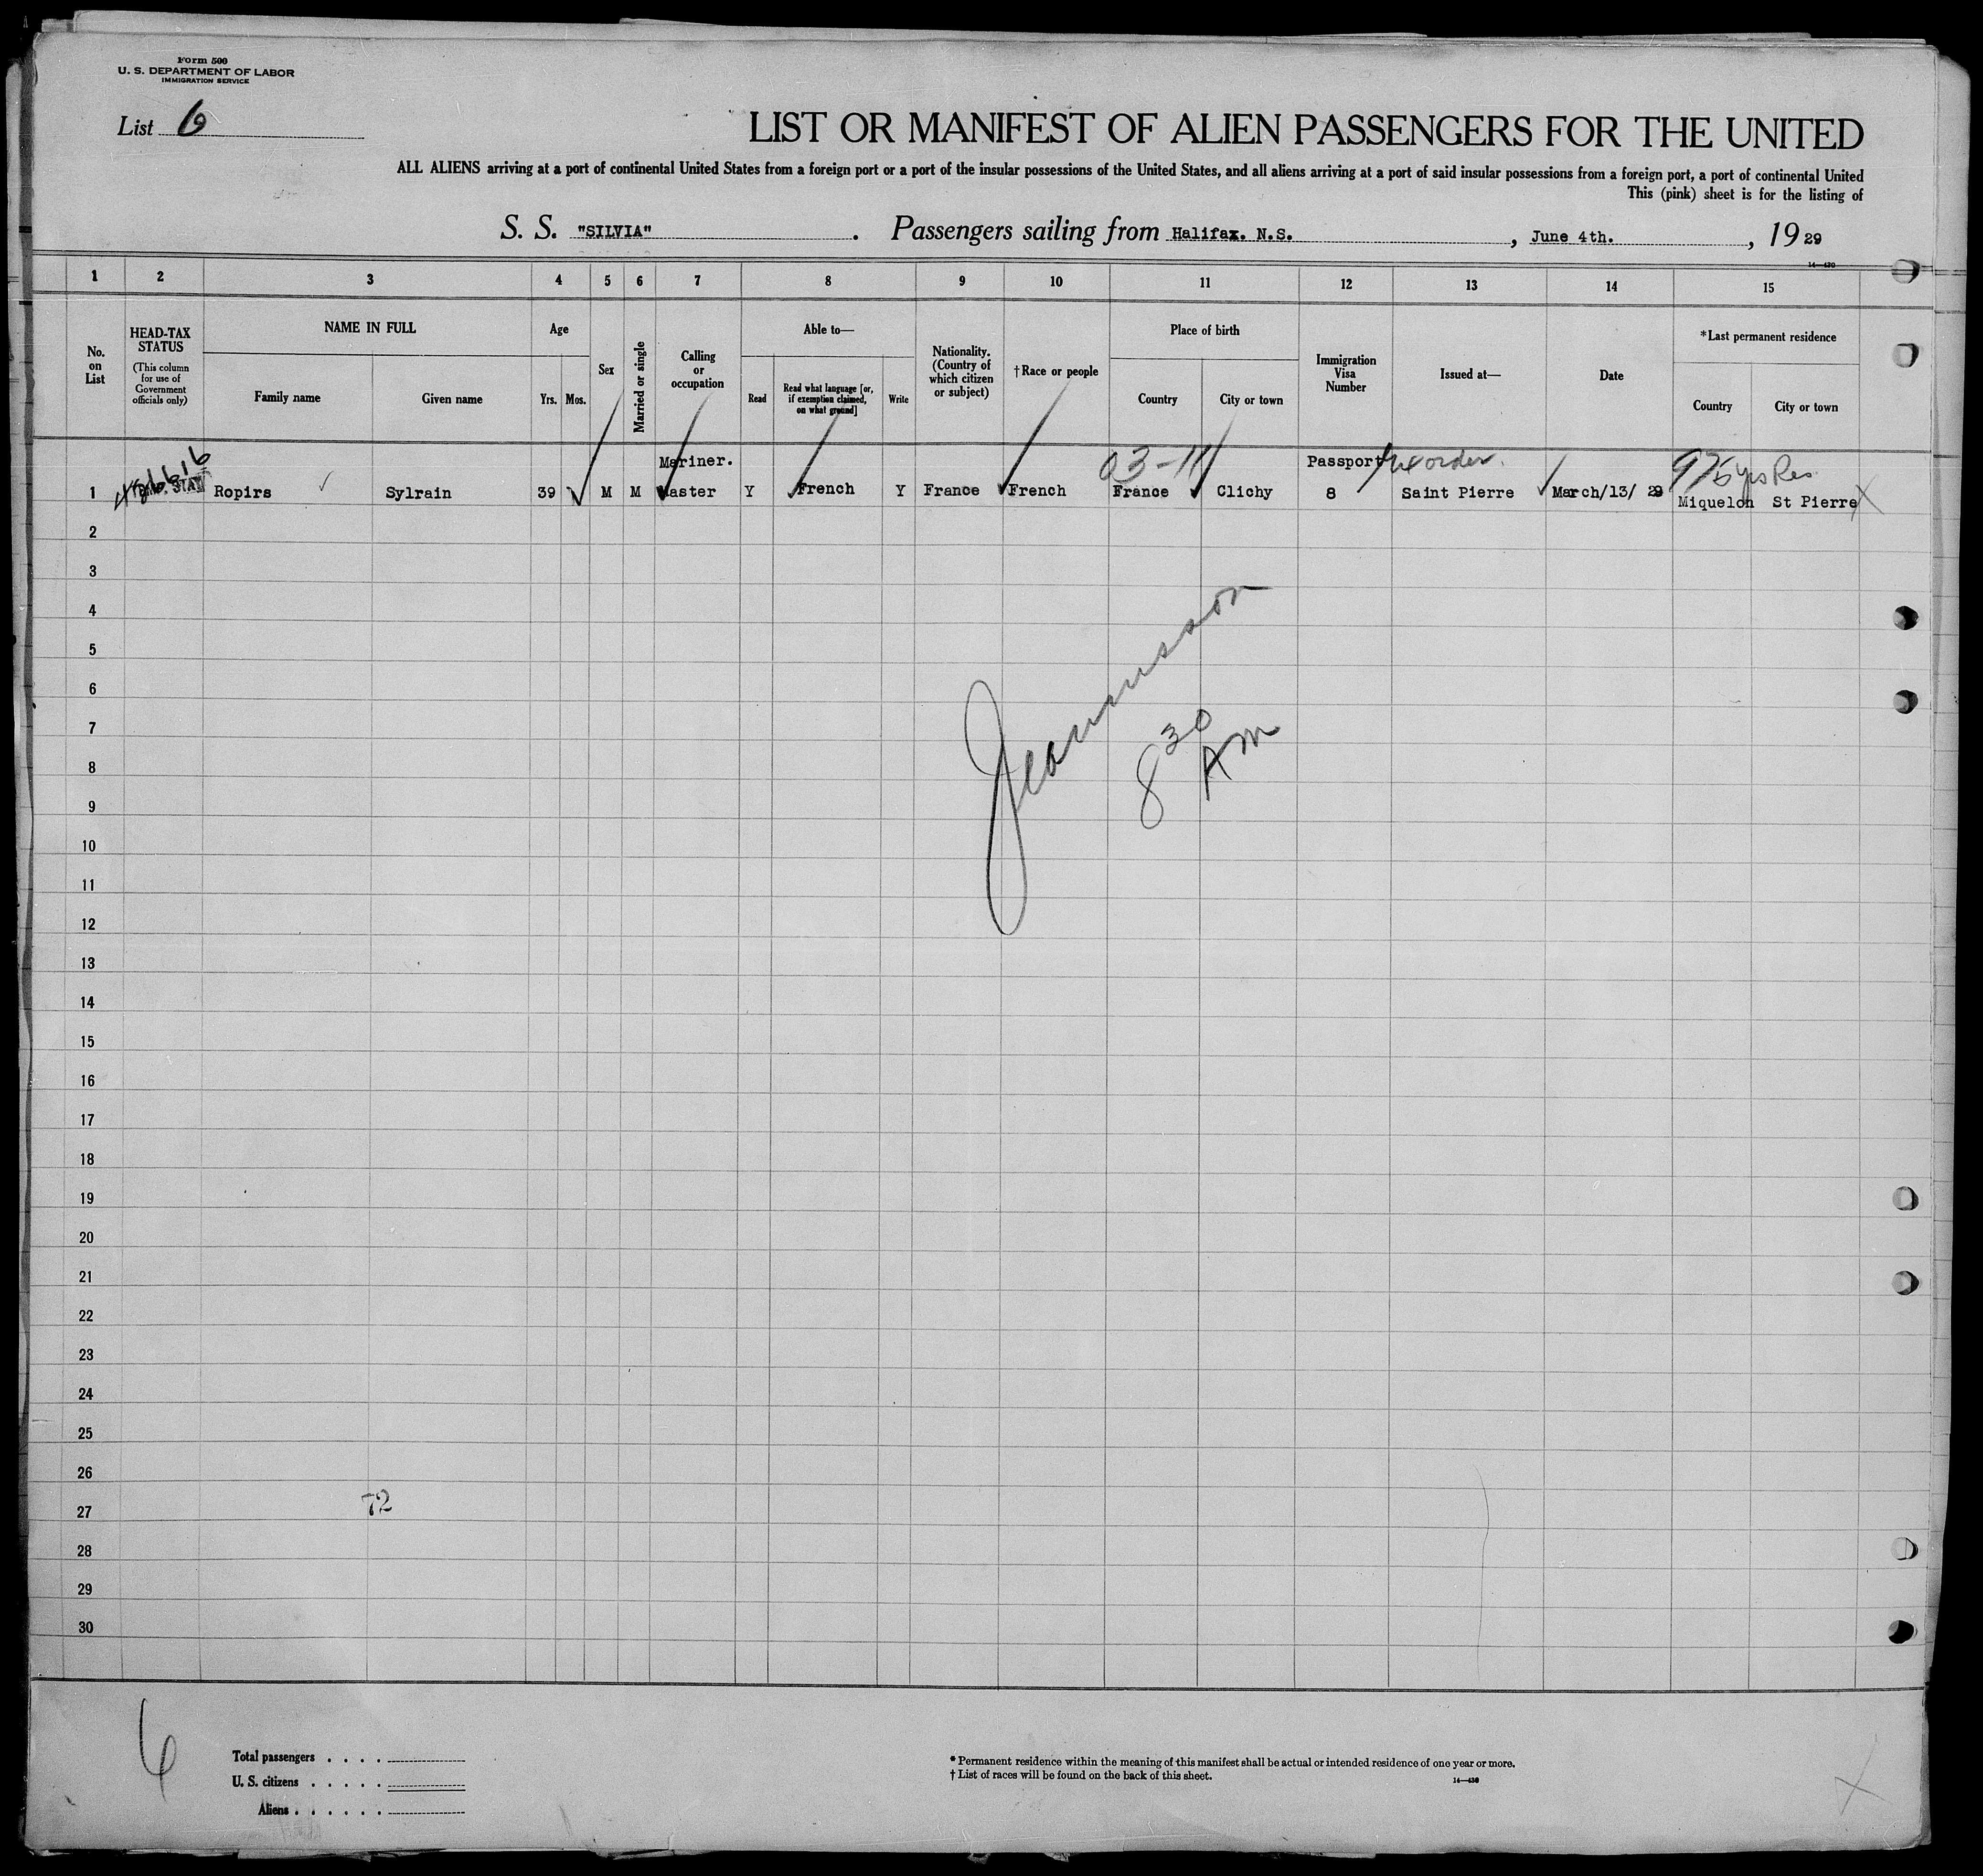 Form 500
U. S. DEPARTMENT OF LABOR
IMMIGRATION SERVICE
List 6
LIST OR MANIFEST OF ALIEN PASSENGERS FOR THE UNITED
ALL ALIENS arriving at a port of continental United States from a foreign port or a port of the insular possessions of the United States, and all aliens arriving at a port of said insular possessions from a foreign port, a port of continental United
This (pink) sheet is for the listing of
S. S. "SILVIA". Passengers sailing from Halifax. N.S., June 4th., 19 29
14—430
1 2 3 4 5 6 7 8 9 10 11 12 13 14 15
No. on List
HEAD-TAX STATUS
(This column for use of Government officials only)
NAME IN FULL
Family name Given name
Age
Yrs. Mos.
Sex
Married or single
Calling or occupation
Able to—
Read
Read what language [or, if exemption claimed, on what ground]
Write
Nationality. (Country of which citizen or subject)
†Race or people
Place of birth
Country City or town
Immigration Visa Number
Issued at—
Date
*Last permanent residence
Country City or town
Mariner. 03-11 Passport order. 5 yrs Res
1 Ropirs Sylrain 39 M M Master Y French Y France French France Clichy 8 Saint Pierre March/13/ 29 Miquelon St Pierre
2
3
4
5
6
7
8
9
10
11
12
13
14
15
16
17
18
19
20
21
22
23
24
25
26
27
28
29
30
8 30 AM
72
6
Total passengers . . . .
U. S. citizens . . . . .
Aliens . . . . . .
* Permanent residence within the meaning of this manifest shall be actual or intended residence of one year or more.
† List of races will be found on the back of this sheet.
14—430